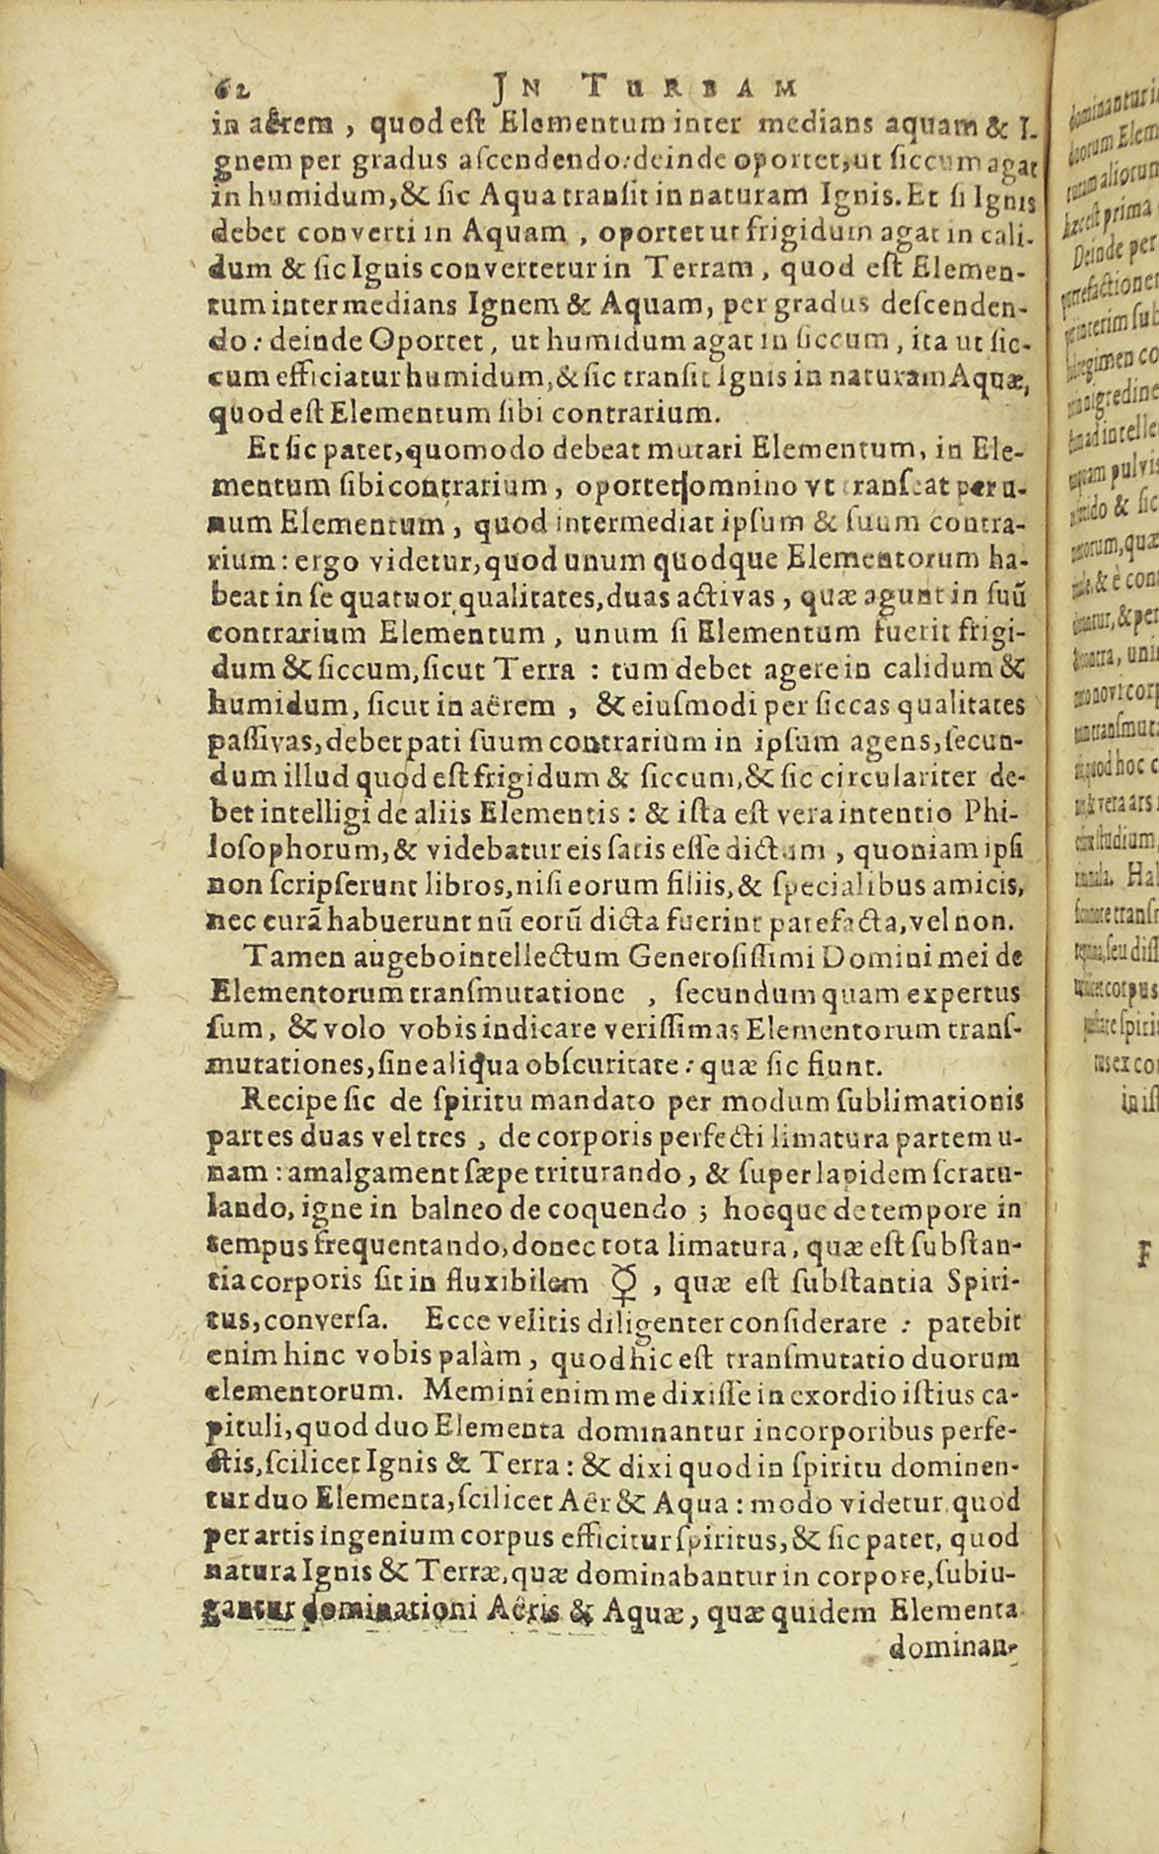 62 IN TURBAM
in aërem, quod est Elementum inter medians aquam & I-
gnem per gradus ascendendo: deinde oportet, ut siccum agat
in humidum, & sic Aqua transit in naturam Ignis. Et si Ignis
debet converti in Aquam, oportet ut frigidum agat in cali-
dum & sic Ignis convertetur in Terram, quod est Elemen-
tum inter medians Ignem & Aquam, per gradus descenden-
do: deinde Oportet, ut humidum agat in siccum, ita ut sic-
cum efficiatur humidum, & sic transit Ignis in naturam Aquæ,
quod est Elementum sibi contrarium.
Et sic patet, quomodo debeat mutari Elementum, in Ele-
mentum sibi contrarium, oportet omnino vt transeat per u-
num Elementum, quod intermediat ipsum & suum contra-
rium: ergo videtur, quod unum quodque Elementorum ha-
beat in se quatuor qualitates, duas activas, quæ agunt in suũ
contrarium Elementum, unum si Elementum fuerit frigi-
dum & siccum, sicut Terra: tum debet agere in calidum &
humidum, sicut in aërem, & eiusmodi per siccas qualitates
passivas, debet pati suum contrarium in ipsum agens, secun-
dum illud quod est frigidum & siccum, & sic circulariter de-
bet intelligi de aliis Elementis: & ista est vera intentio Phi-
losophorum, & videbatur eis satis esse dictum, quoniam ipsi
non scripserunt libros, nisi eorum filiis, & specialibus amicis,
nec curã habuerunt nũ eorũ dicta fuerint patefacta, vel non.
Tamen augebo intellectum Generosissimi Domini mei de
Elementorum transmutatione, secundum quam expertus
sum, & volo vobis indicare verissimas Elementorum trans-
mutationes, sine aliqua obscuritate: quæ sic fiunt.
Recipe sic de spiritu mandato per modum sublimationis
partes duas vel tres, de corporis perfecti limatura partem u-
nam: amalgament sæpe triturando, & super lapidem scratu-
lando, igne in balneo de coquendo; hocque de tempore in
tempus frequentando, donec tota limatura, quæ est substan-
tia corporis sit in fluxibilem ☿, quæ est substantia Spiri-
tus, conversa. Ecce velitis diligenter considerare: patebit
enim hinc vobis palàm, quod hic est transmutatio duorum
elementorum. Memini enim me dixisse in exordio istius ca-
pituli, quod duo Elementa dominantur in corporibus perfe-
ctis, scilicet Ignis & Terra: & dixi quod in spiritu dominen-
tur duo Elementa, scilicet Aër & Aqua: modo videtur quod
per artis ingenium corpus efficitur spiritus, & sic patet, quod
natura Ignis & Terræ, quæ dominabantur in corpore, subiu-
gantur dominationi Aëris & Aquæ, quæ quidem Elementa
dominan-